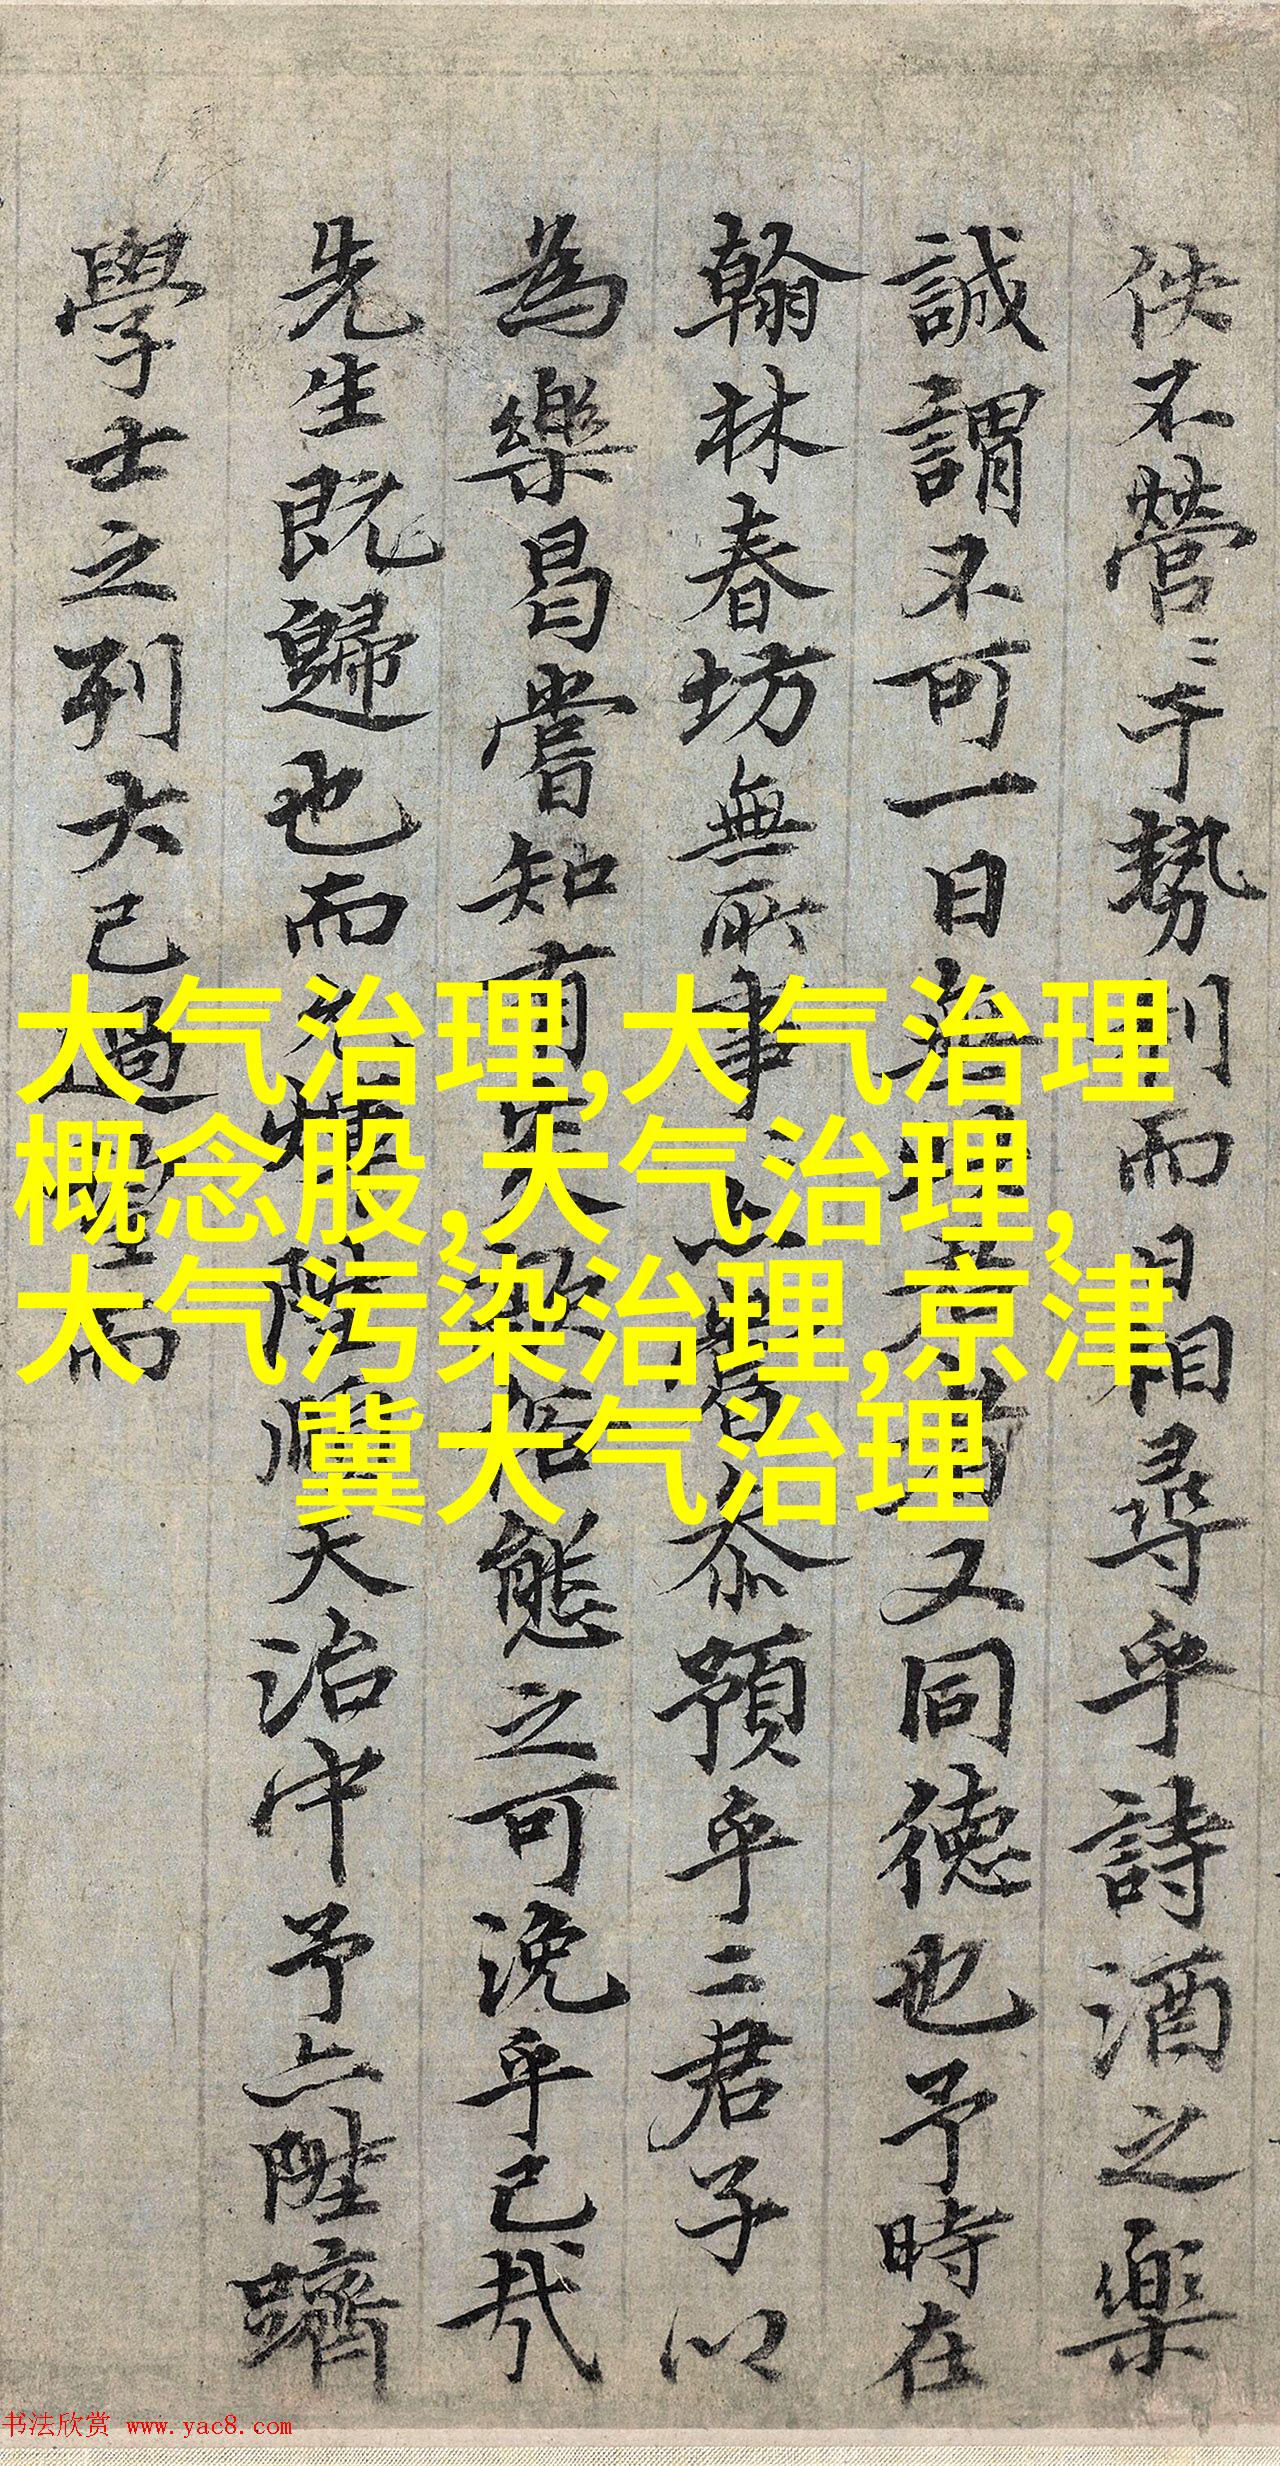 佚不營二于勢利而日相尋乎詩酒之樂
誠謂不可一日又同德也予時在
翰林春坊無所事預乎二君子以
為樂曷嘗知有態之可浼乎已哉
先生既歸也而天治中予亦陞躋
學士之列大已過而
大气治理,大气治理
概念股,大气治理,
大气污染治理,京津
冀大气治理
书法欣赏 www.yac8.com